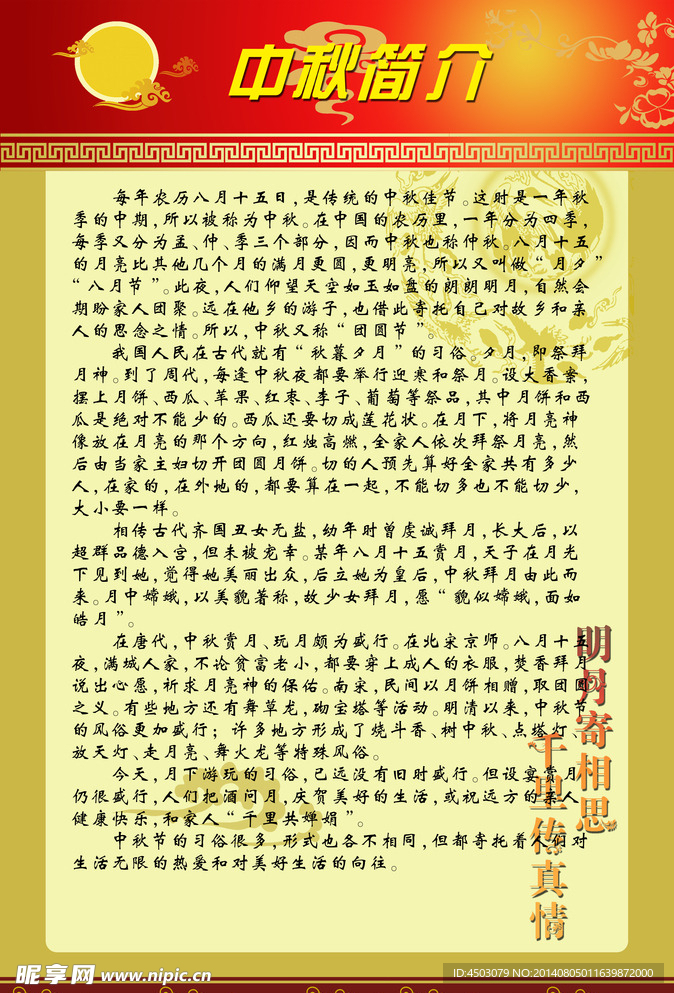 中秋简介
每年农历八月十五日，是传统的中秋佳节。这时是一年秋
季的中期，所以被称为中秋。在中国的农历里，一年分为四季，
每季又分为孟、仲、季三个部分，因而中秋也称仲秋。八月十五
的月亮比其他几个月的满月更圆，更明亮，所以又叫做“月夕”
“八月节”。此夜，人们仰望天空如玉如盘的朗朗明月，自然会
期盼家人团聚。远在他乡的游子，也借此寄托自己对故乡和亲
人的思念之情。所以，中秋又称“团圆节”。
我国人民在古代就有“秋暮夕月”的习俗。夕月，即祭拜
月神。到了周代，每逢中秋夜都要举行迎寒和祭月。设大香案，
摆上月饼、西瓜、苹果、红枣、李子、葡萄等祭品，其中月饼和西
瓜是绝对不能少的。西瓜还要切成莲花状。在月下，将月亮神
像放在月亮的那个方向，红烛高燃，全家人依次拜祭月亮，然
后由当家主妇切开团圆月饼。切的人预先算好全家共有多少
人，在家的，在外地的，都要算在一起，不能切多也不能切少，
大小要一样。
相传古代齐国丑女无盐，幼年时曾虔诚拜月，长大后，以
超群品德入宫，但未被宠幸。某年八月十五赏月，天子在月光
下见到她，觉得她美丽出众，后立她为皇后，中秋拜月由此而
来。月中嫦娥，以美貌著称，故少女拜月，愿“貌似嫦娥，面如
皓月”。
在唐代，中秋赏月、玩月颇为盛行。在北宋京师。八月十五
夜，满城人家，不论贫富老小，都要穿上成人的衣服，焚香拜月
说出心愿，祈求月亮神的保佑。南宋，民间以月饼相赠，取团圆
之义。有些地方还有舞草龙，砌宝塔等活动。明清以来，中秋节
的风俗更加盛行；许多地方形成了烧斗香、树中秋、点塔灯、
放天灯、走月亮、舞火龙等特殊风俗。
今天，月下游玩的习俗，已远没有旧时盛行。但设宴赏月
仍很盛行，人们把酒问月，庆贺美好的生活，或祝远方的亲人
健康快乐，和家人“千里共婵娟”。
中秋节的习俗很多，形式也各不相同，但都寄托着人们对
生活无限的热爱和对美好生活的向往。
明月寄相思
千里传真情
昵享网 www.nipic.cn
ID:4503079 NO:20140805011639872000